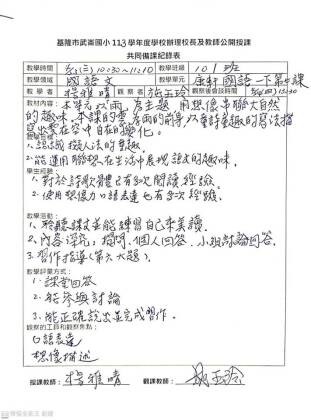 基隆市武崙國小113學年度學校辦理校長及教師公開授課
共同備課紀錄表
教學時間 5/21(三) 10:30~11:10 教學班級 101班
教學領域 國語文 教學單元 康軒國語一下第七課
教學者 楊雅晴 觀察者 施玉玲 觀察後會談時間
教材內容:本單元以雨為主題,用想像串聯大自然
的趣味。本課的雲
出雲在空中自在的變化。
教學目標:
1.認識擬人法的童趣。
2.能運用聯想在生活中展現語文的趣味。
學生經驗:
1.對於詩歌體已有多次閱讀經驗。
2.使用想像力口語表達也有多次經驗。
教學活動:
1.聆聽課文並能練習自己來美讀。
2.內容深究:提問、個人回答、小組討論回答。
3.習作指導(第六大題)。
教學評量方式:
1.課堂回答
2.能參與討論
3.能正確說出並完成習作。
觀察的工具和觀察焦點:
口語表達
想像描述
授課教師: 楊雅晴 觀課教師: 施玉玲